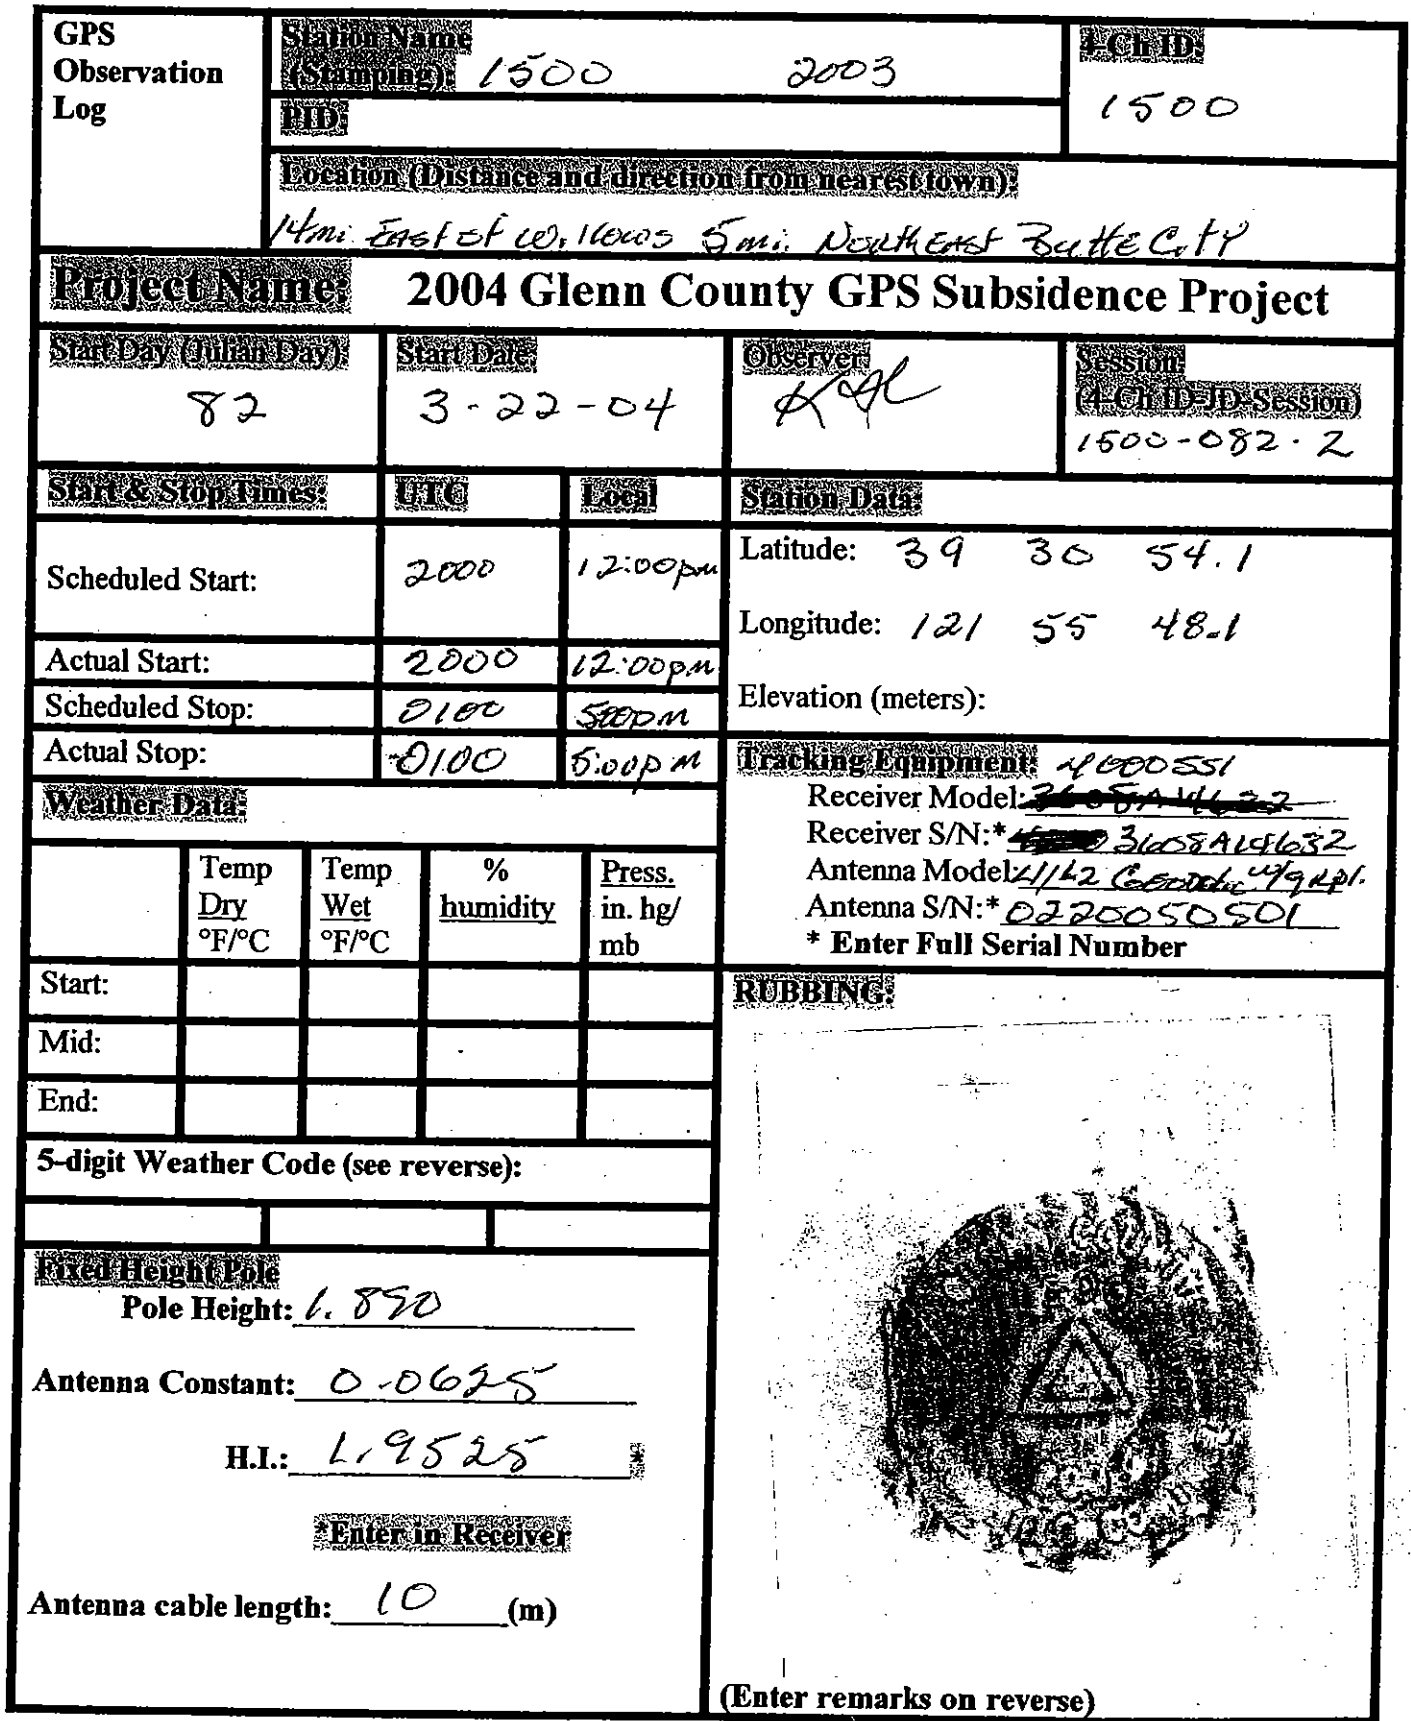 GPS
Observation
Log
Station Name
(Stamping): 1500 2003
PID:
4-Ch ID:
1500
Location (Distance and direction from nearest town):
14mi East of Willows 5mi. NorthEast Butte City
Project Name: 2004 Glenn County GPS Subsidence Project
Start Day (Julian Day)
82
Start Date
3-22-04
Observer
Session
(4-Ch ID-JD-Session)
1500-082.2
Start & Stop Times: UTC Local
Scheduled Start: 2000 12:00pm
Actual Start: 2000 12:00pm
Scheduled Stop: 0100 5:00pm
Actual Stop: 0100 5:00pm
Station Data:
Latitude: 39 30 54.1
Longitude: 121 55 48.1
Elevation (meters):
Tracking Equipment: 4000SSI
Receiver Model:
Receiver S/N:* 3608A14632
Antenna Model: L1/L2 Geodetic w/grd pl.
Antenna S/N:* 0220050501
* Enter Full Serial Number
Weather Data:
Temp
Dry
°F/°C
Temp
Wet
°F/°C
%
humidity
Press.
in. hg/
mb
Start:
Mid:
End:
5-digit Weather Code (see reverse):
Fixed Height Pole
Pole Height: 1.890
Antenna Constant: 0.0625
H.I.: 1.9525 *
*Enter in Receiver
Antenna cable length: 10 (m)
RUBBING:
(Enter remarks on reverse)